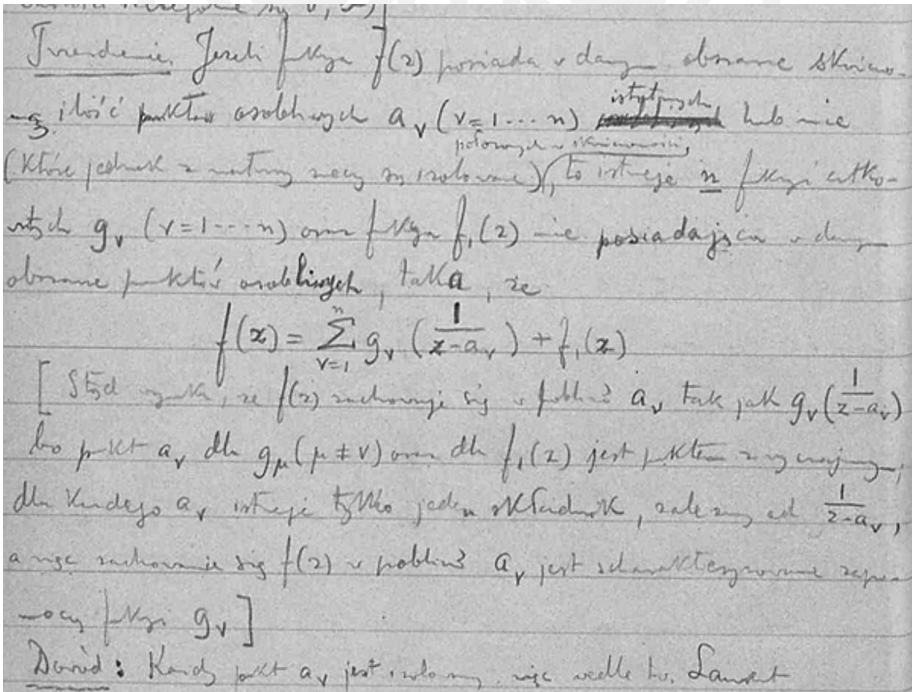 Twierdzenie. Jeżeli fkcya f(z) posiada w danym obszarze skończo-
-ną ilość punktów osobliwych a_ν (ν=1···n) istotnych lub nie
położonych w skończoności,
(które jednak z natury rzeczy są izolowane), to istnieje n fkcyi całko-
witych g_ν (ν=1···n) oraz fkcya f₁(z) nie posiadająca w danym
obszarze punktów osobliwych, taka, że
f(z) = Σ_{ν=1}^{n} g_ν (1/(z-a_ν)) + f₁(z)
[Stąd wynika, że f(z) zachowuje się w pobliżu a_ν tak jak g_ν(1/(z-a_ν))
bo punkt a_ν dla g_μ (μ≠ν) oraz dla f₁(z) jest punktem zwyczajnym,
dla każdego a_ν istnieje tylko jeden składnik, zależny od 1/(z-a_ν),
a więc zachowanie się f(z) w pobliżu a_ν jest scharakteryzowane zapo-
-mocą fkcyi g_ν]
Dowód: Każdy punkt a_ν jest izolowany, więc wedle tw. Laurent